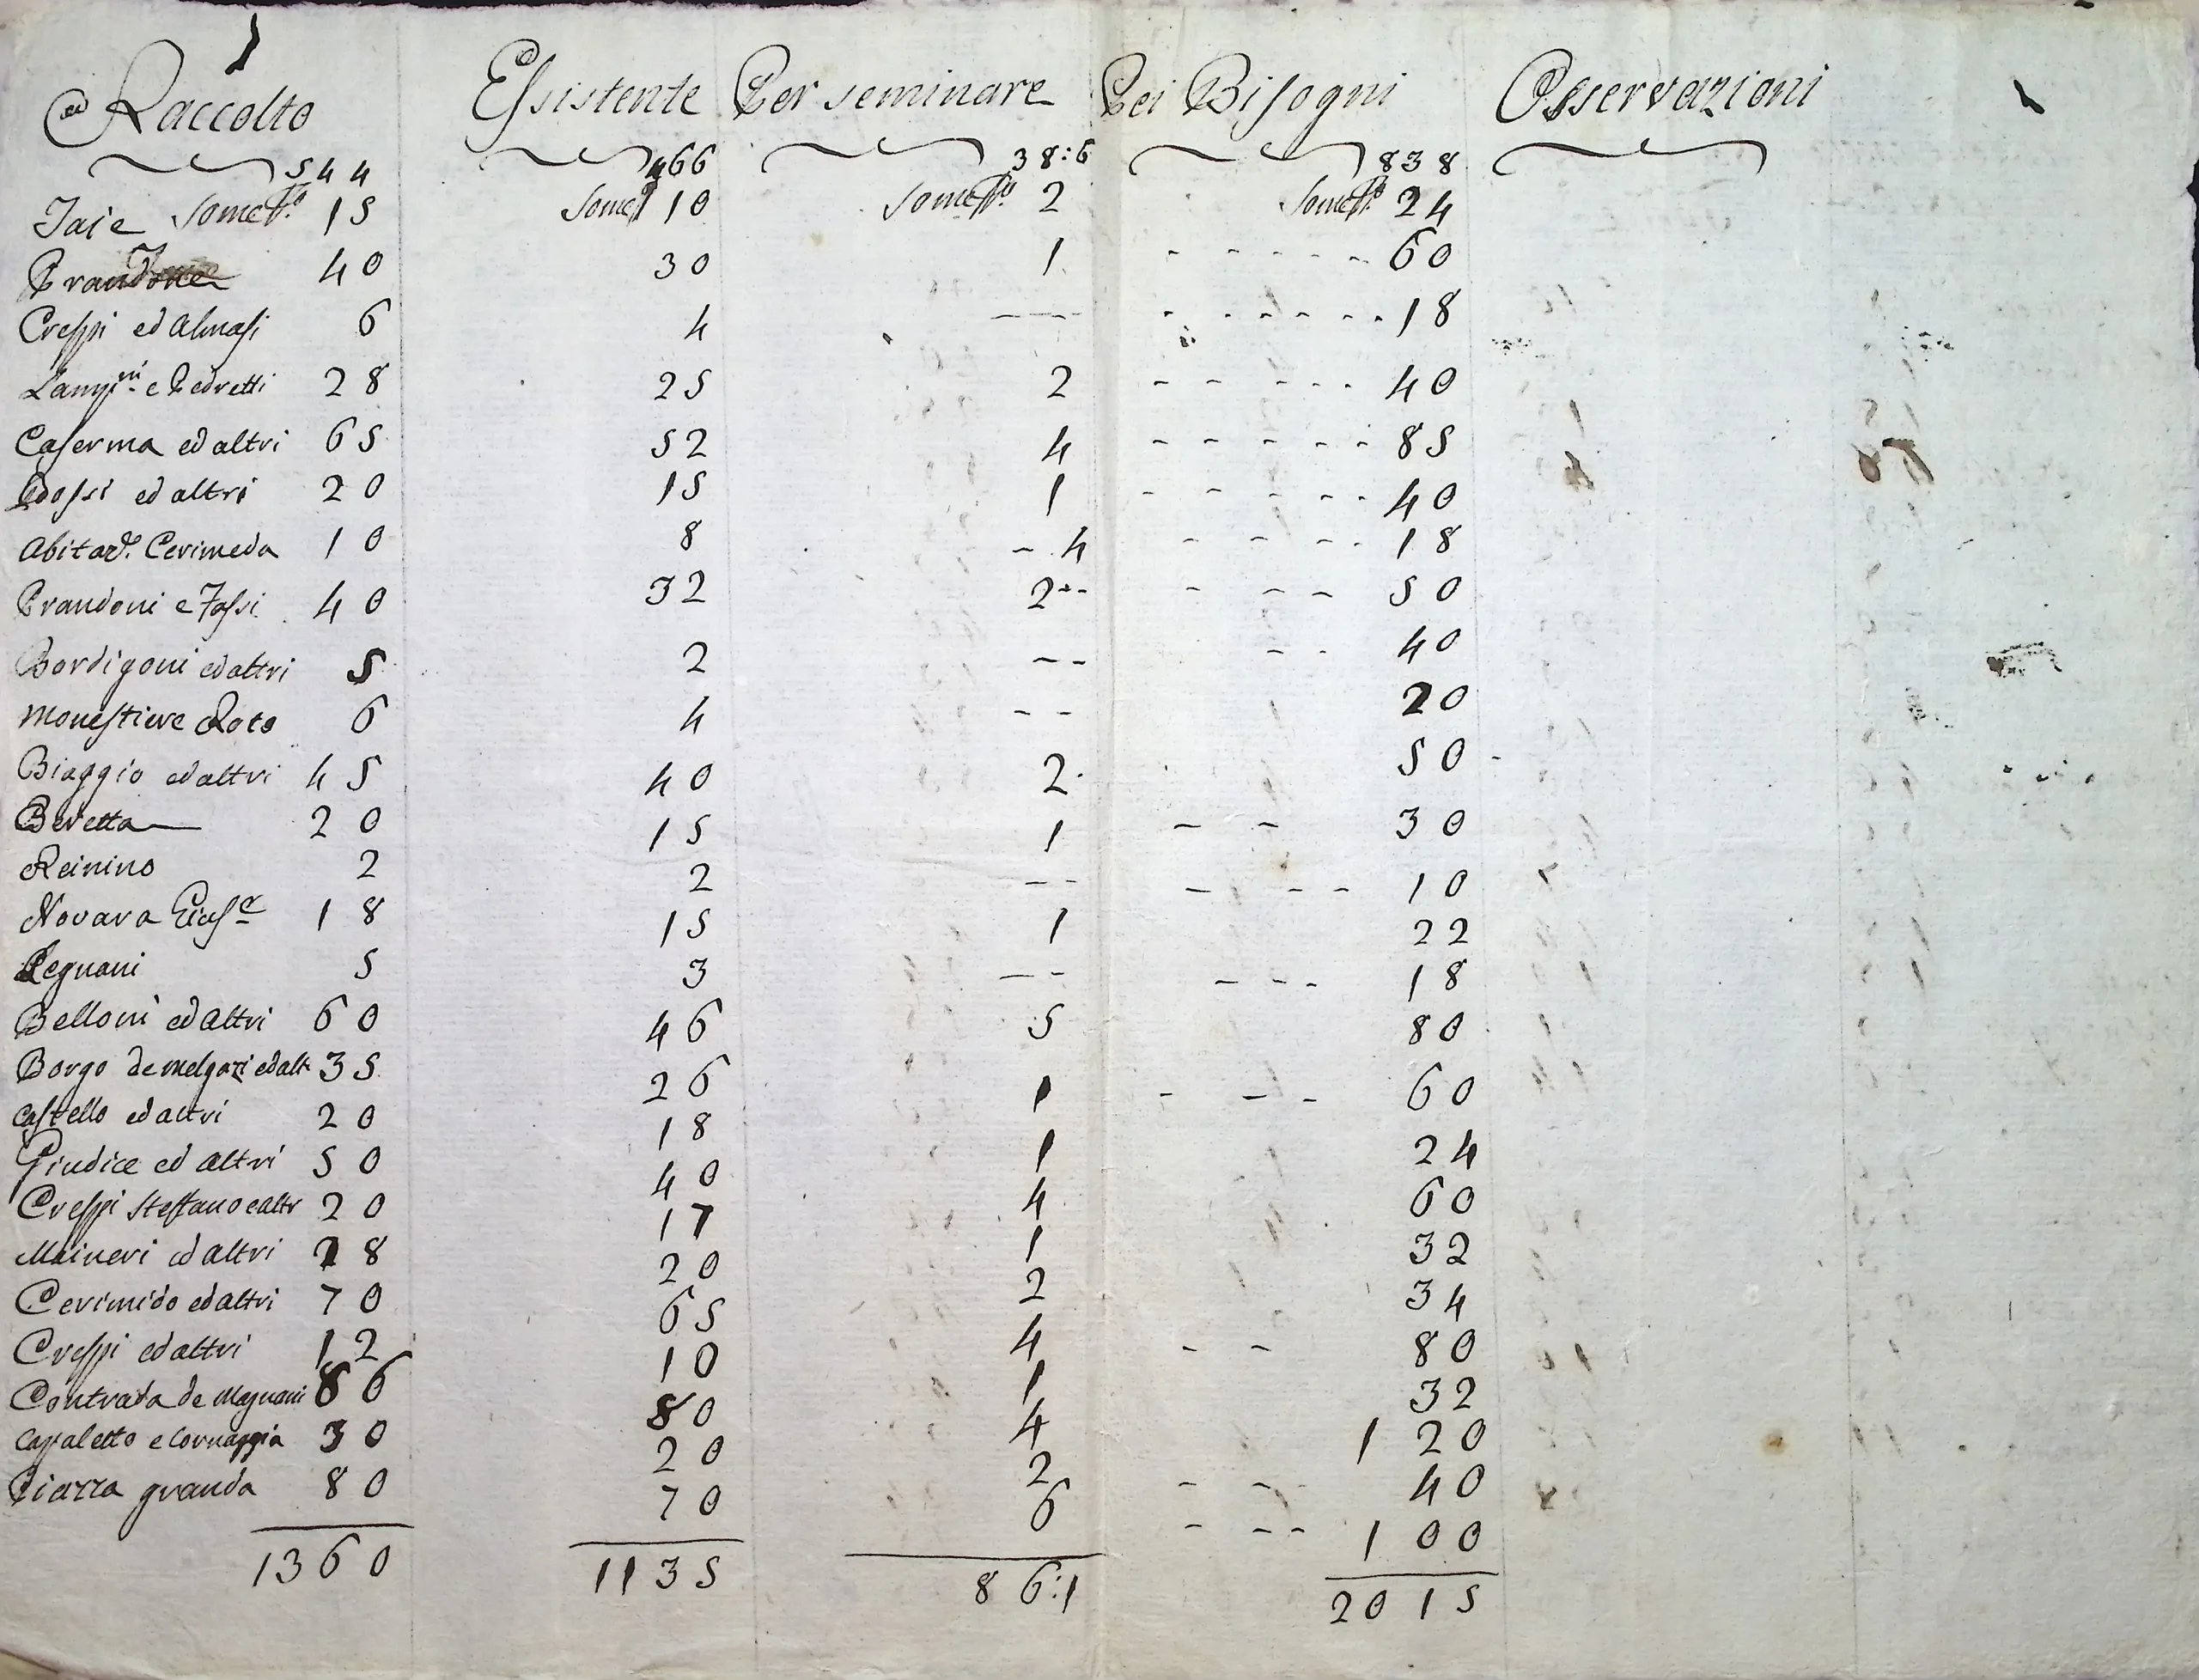 Raccolto Essistente Per seminare Pei Bisogni Osservazioni
544 466 38:6 838
Taie 15 10 2 24
40 30 1 60
Crespi ed Almasi 6 4 -- 18
e Pedretti 28 25 2 40
Caserma ed altri 65 52 4 85
ed altri 20 15 1 40
Cerimeda 10 8 - 4 18
Prandoni e 40 32 2 -- 50
Bordigoni ed altri 5 2 -- 40
Monestiere Roto 6 4 -- 20
Biaggio ed altri 45 40 2 50
Beretta 20 15 1 30
Reinino 2 2 -- 10
Novara 18 15 1 22
Legnani 5 3 -- 18
Belloni ed Altri 60 46 5 80
Borgo de Melgazi ed alt 35 26 1 60
Castello ed altri 20 18 1 24
Giudice ed Altri 50 40 4 60
Crespi Steffano e altr 20 17 1 32
Maineri ed altri 28 20 2 34
Cerimido ed altri 70 65 4 80
Crespi ed altri 12 10 1 32
Contrada de Magnani 86 80 4 120
Capaletto e Cornaggia 30 20 2 40
Piazza granda 80 70 6 100
1360 1135 86:1 2015